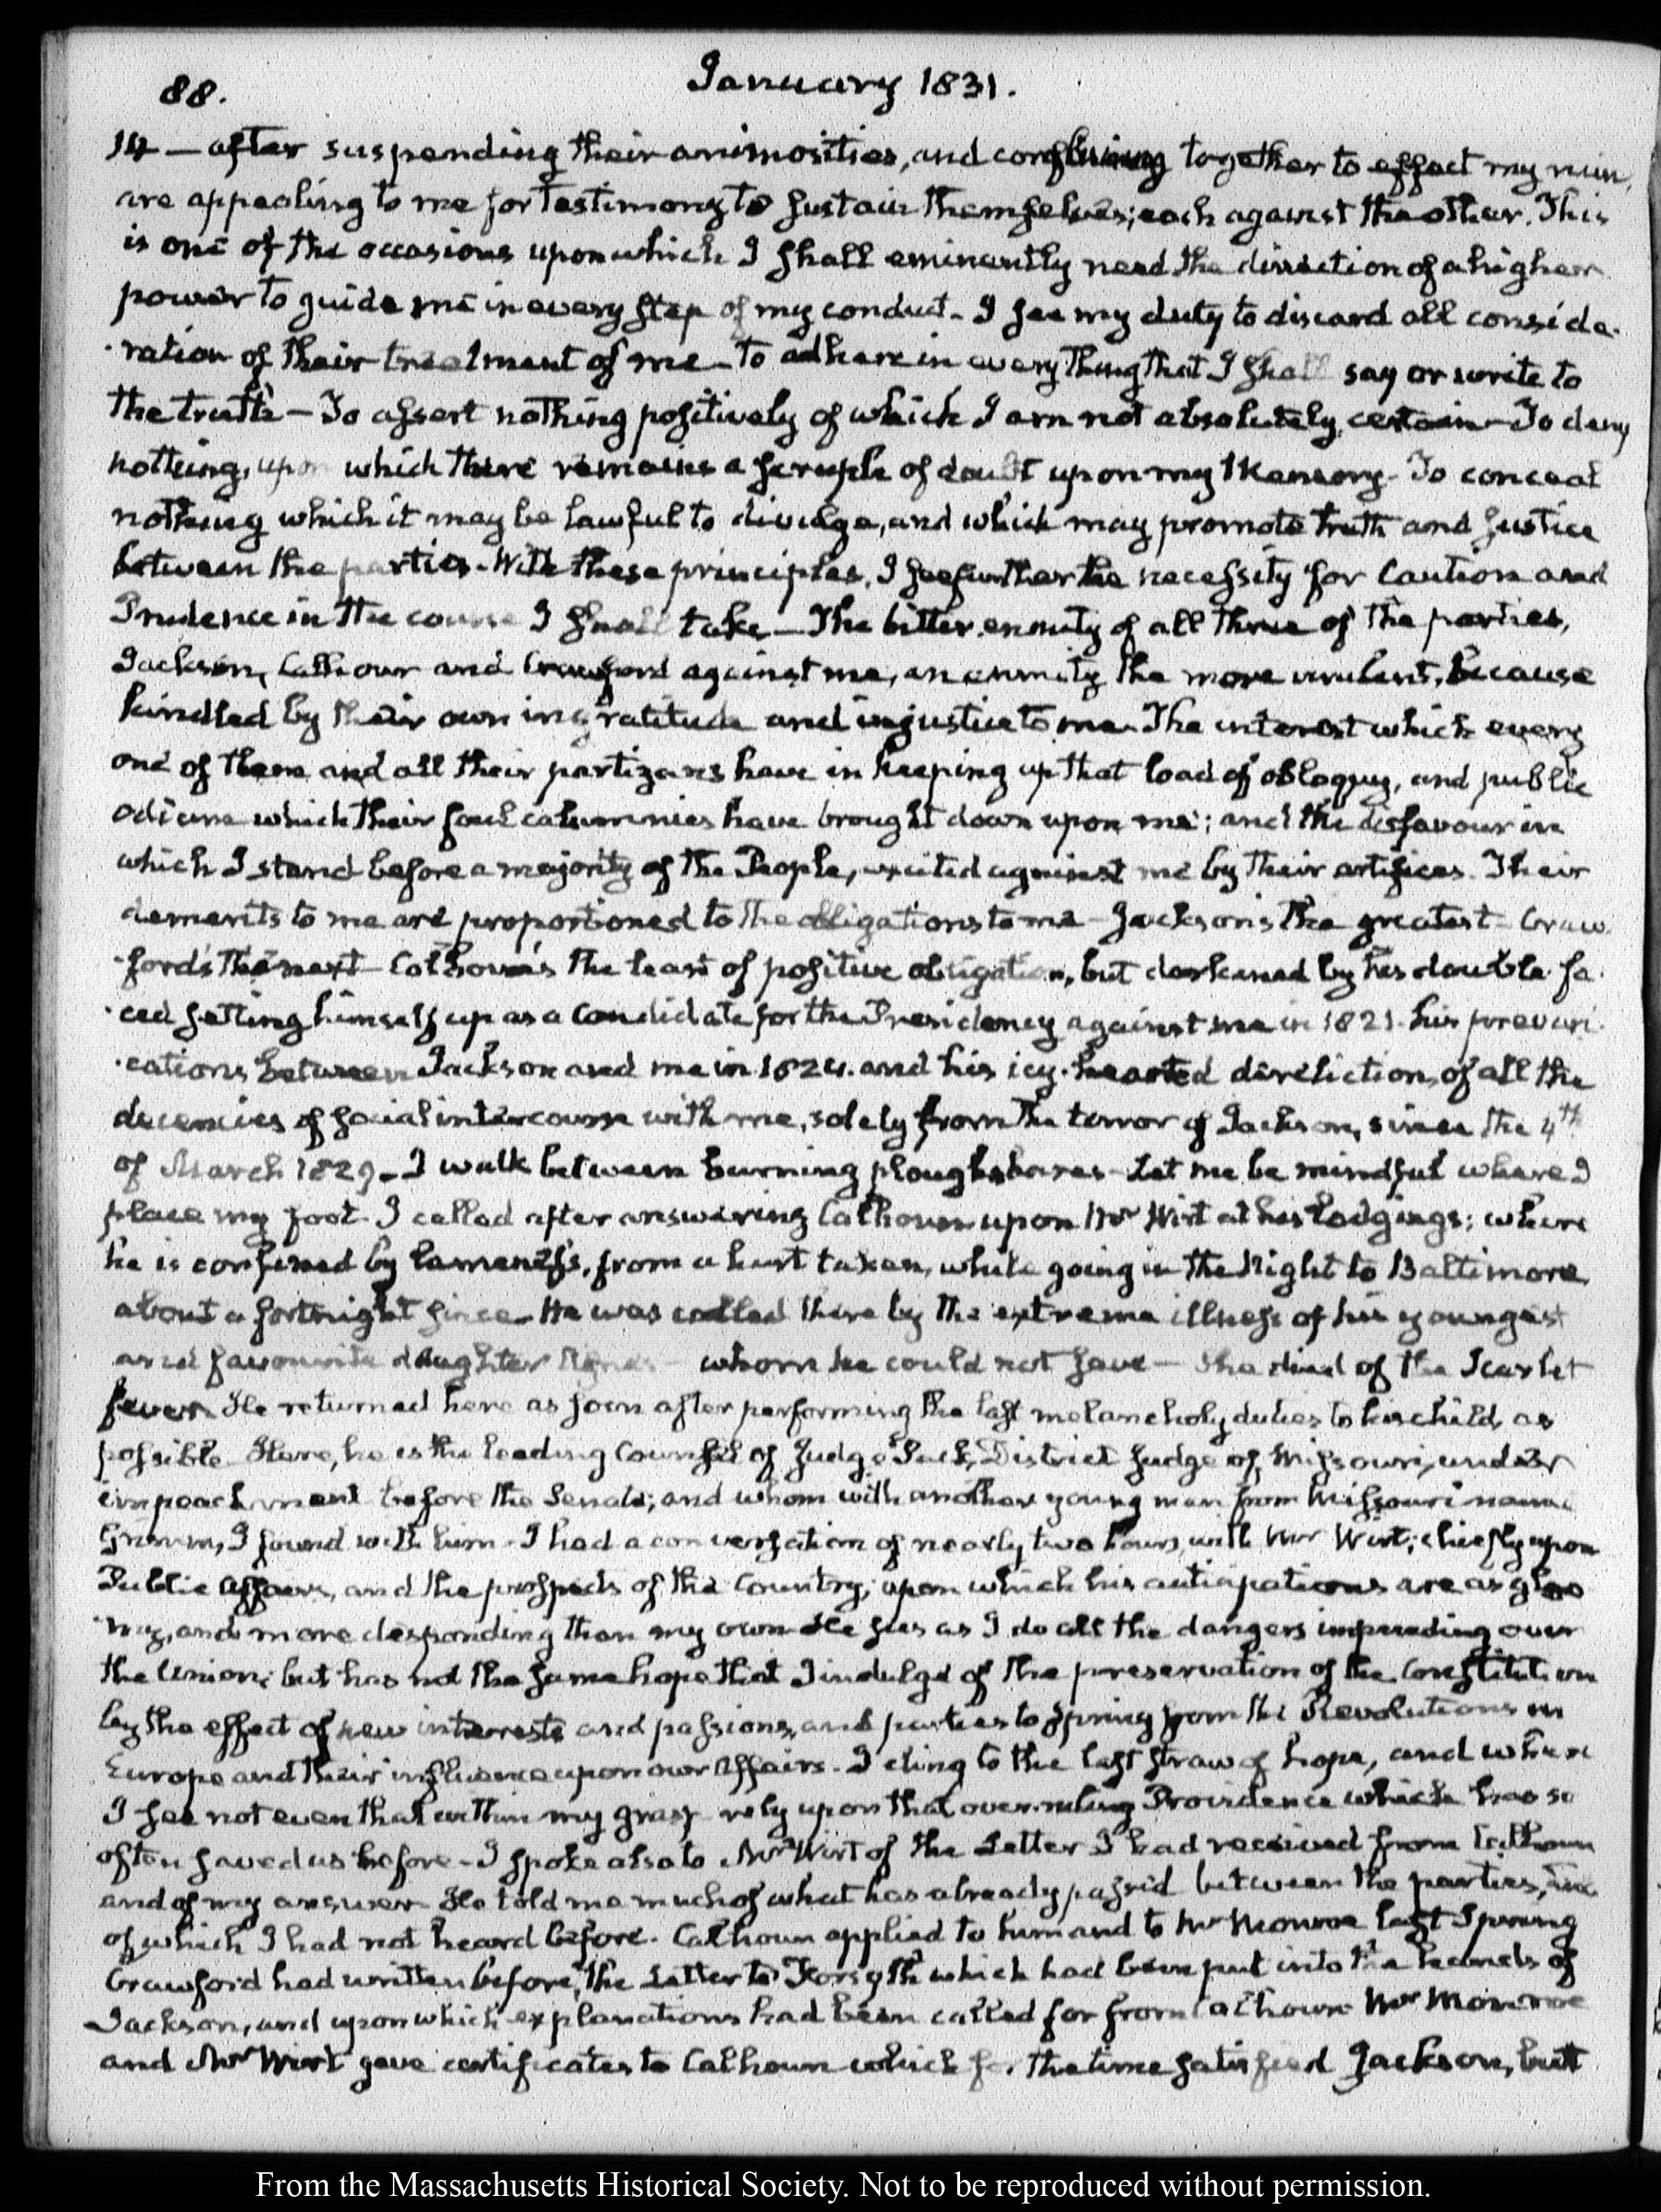 88.
January 1831.
14 — after suspending their animosities, and combining together to effect my ruin,
are appealing to me for Testimony to sustain themselves; each against the other. This
is one of the occasions upon which I shall eminently need the direction of a higher
power to guide me in every step of my conduct. I see my duty to discard all conside-
-ration of their treatment of me. To adhere in every thing that I shall say or write to
the truth — To assert nothing positively of which I am not absolutely certain — To deny
nothing, upon which there remains a scruple of doubt upon my Memory. To conceal
nothing which it may be lawful to divulge, and which may promote truth and justice
between the parties. With these principles, I see further the necessity for Caution and
Prudence in the course I shall take — The bitter enmity of all three of the parties,
Jackson, Calhoun and Crawford against me, an enmity the more virulent, because
kindled by their own ingratitude and injustice to me. The interest which every
one of them and all their partizans have in keeping up that load of obloquy, and public
odium which their foul calumnies have brought down upon me; and the disfavour in
which I stand before a majority of the People, excited against me by their artifices. Their
demerits to me are proportioned to the obligations to me — Jackson's the greatest — Craw-
-ford's the next — Calhoun's the least of positive obligation, but darkened by his double-fa-
-ced setting himself up as a Candidate for the Presidency against me in 1821. his prevari-
-cations between Jackson and me in 1824. and his icy-hearted dereliction, of all the
decencies of social intercourse with me, solely from the terror of Jackson, since the 4th
of March 1829 — I walk between burning ploughshares — Let me be mindful where I
place my foot. I called after answering Calhoun upon Mr Wirt at his lodgings; where
he is confined by lameness, from a hurt taken, while going in the Night to Baltimore,
about a fortnight since. He was called there by the extreme illness of his youngest
and favourite daughter Agnes — whom he could not save — She died of the Scarlet
fever. He returned here as soon after performing the last melancholy duties to his child, as
possible. Here, he is the leading Counsel of Judge Peck, District Judge of Missouri, under
impeachment before the Senate; and whom with another young man from Missouri named
I found with him. I had a conversation of nearly two hours with Mr Wirt; chiefly upon
Public Affairs, and the prospects of the Country; upon which his anticipations are as gloo
-my, and more desponding than my own. He sees as I do all the dangers impending over
the Union; but has not the same hope that I indulge of the preservation of the Constitution
by the effect of new interests and passions, and parties to spring from the Revolutions in
Europe and their influence upon our Affairs. I cling to the last straw of hope, and when
I see not even that within my grasp rely upon that over-ruling Providence which has so
often saved us before. I spoke also to Mr Wirt of the Letter I had received from Calhoun
and of my answer. He told me much of what has already passed between the parties,
of which I had not heard before. Calhoun applied to him and to Mr Monroe last Spring
Crawford had written before, the Letter to Forsyth which had been put into the hands of
Jackson, and upon which explanations had been called for from Calhoun. Mr Monroe
and Mr Wirt gave certificates to Calhoun which for the time satisfied Jackson, but
From the Massachusetts Historical Society. Not to be reproduced without permission.